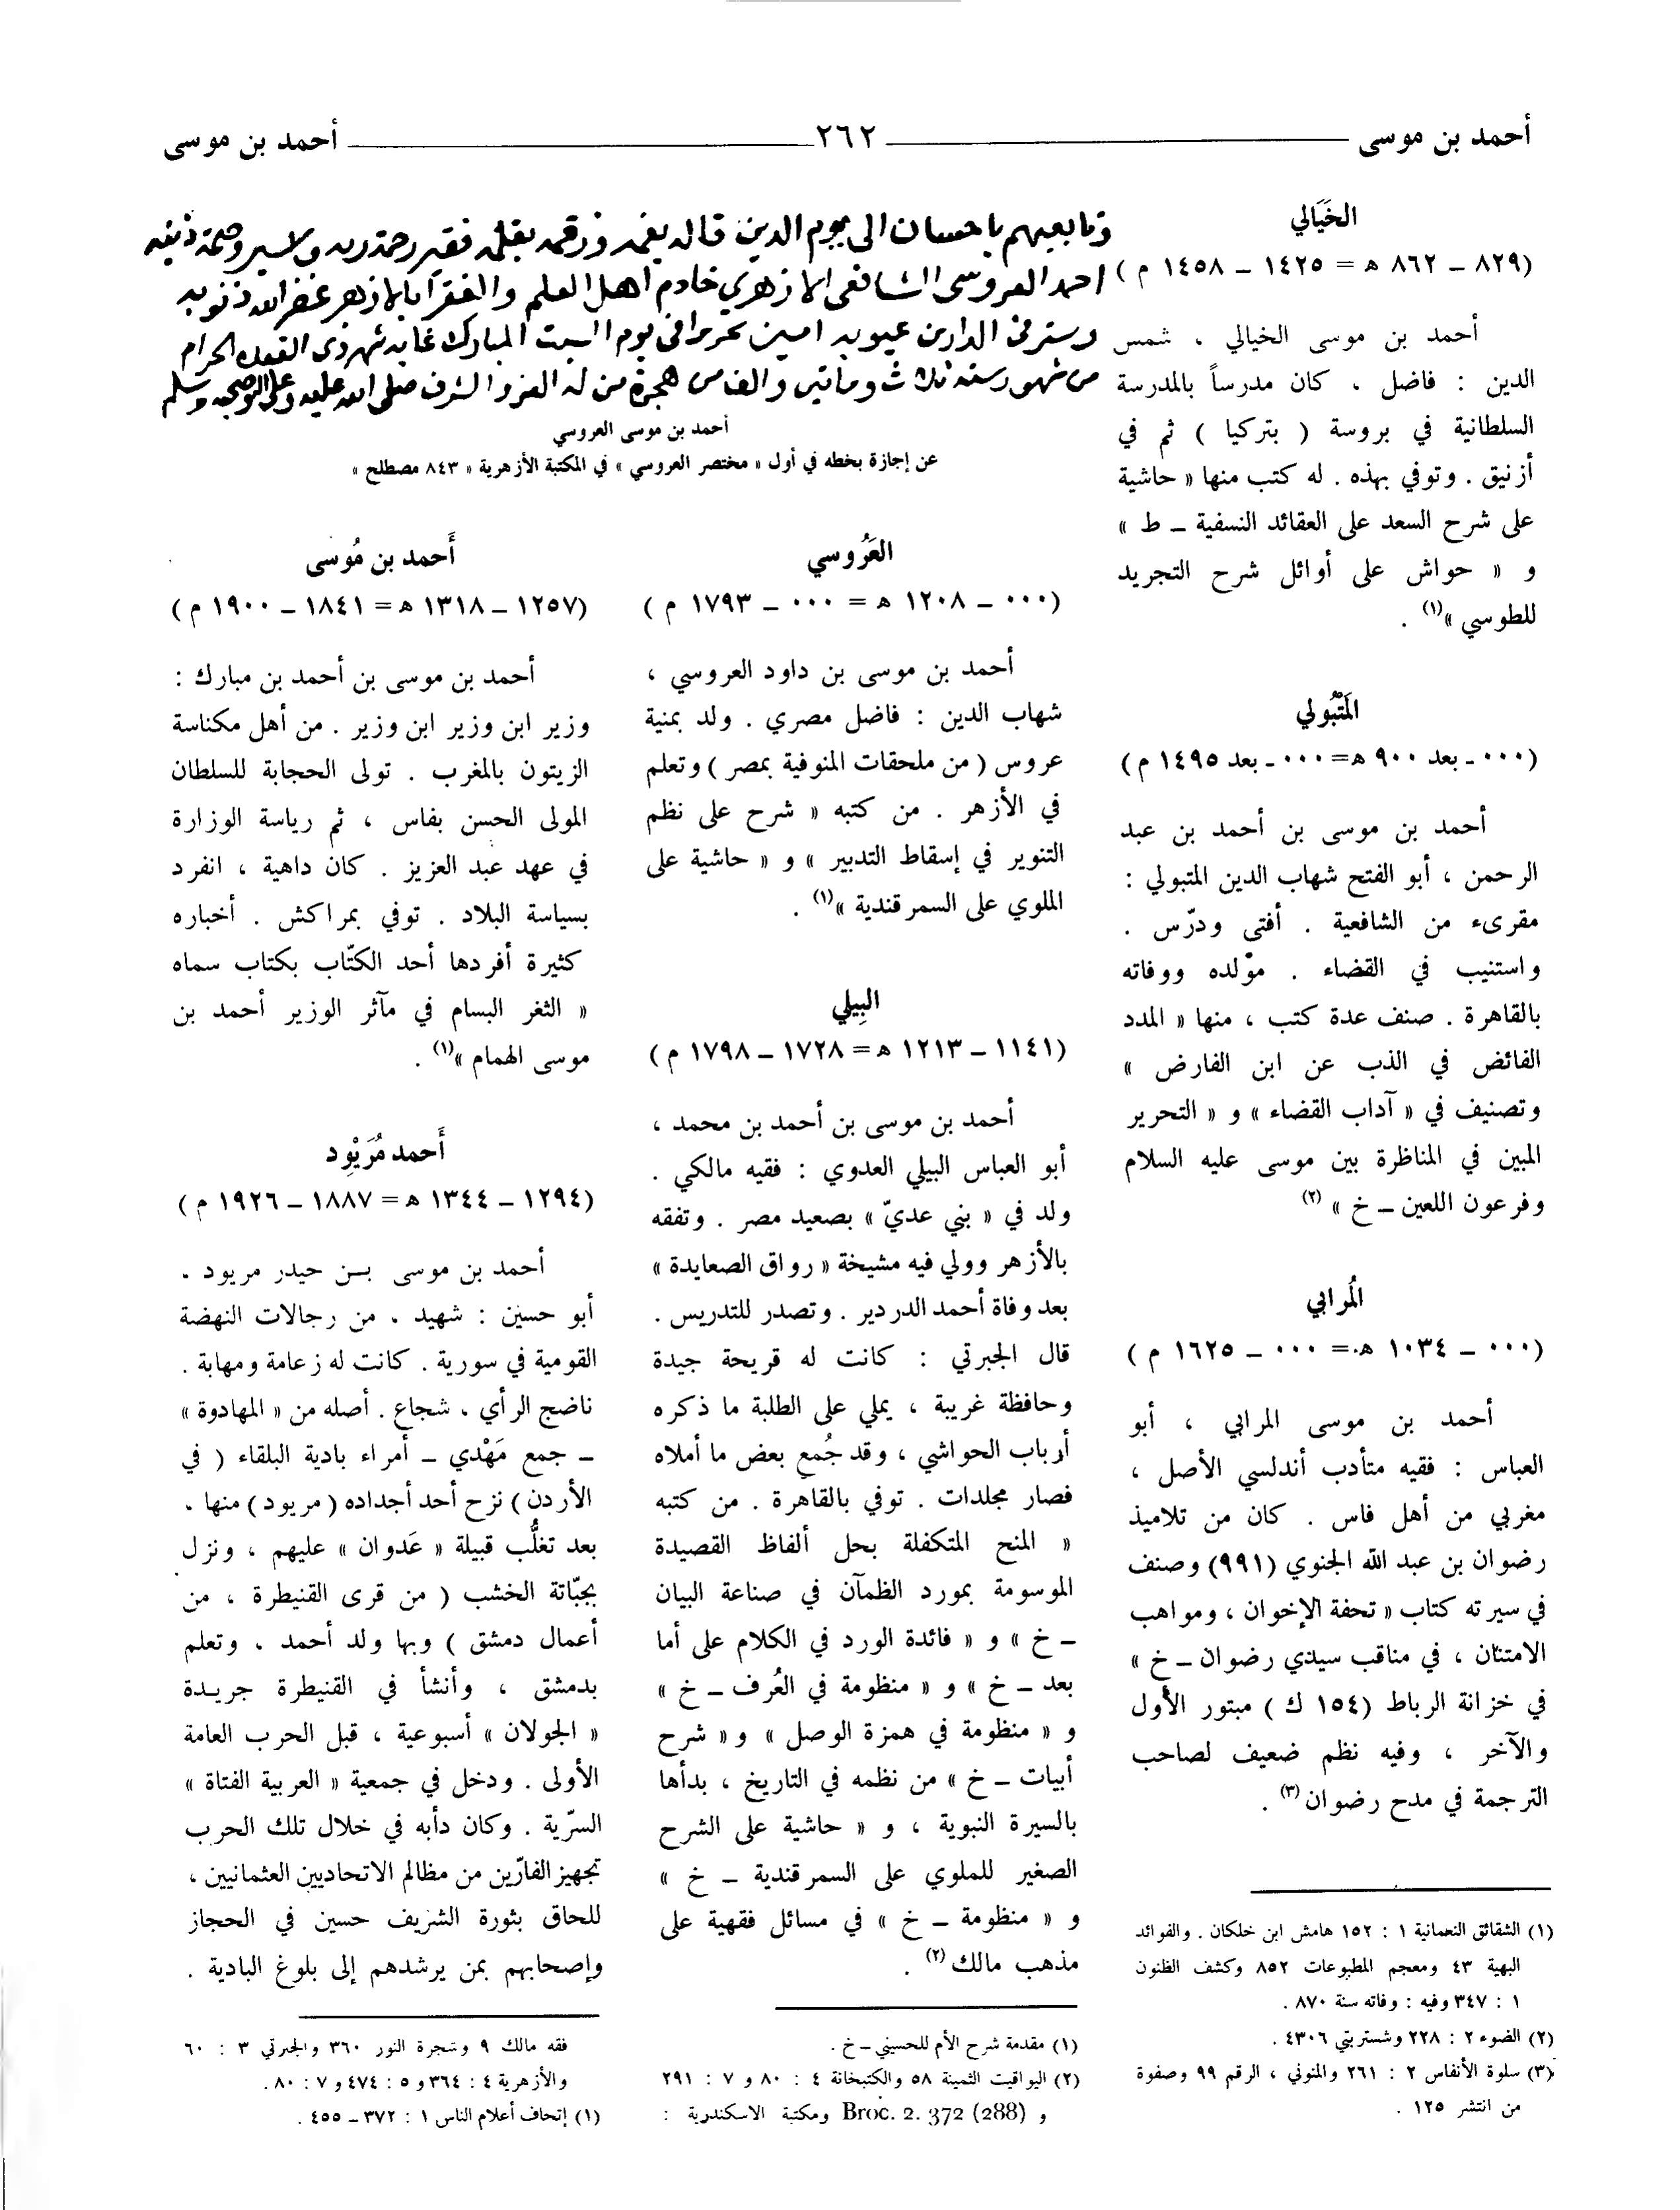 أحمد بن موسى ٢٦٢ أحمد بن موسى
الخَيَالي
(٨٢٩ ـ ٨٦٢ هـ = ١٤٢٥ ـ ١٤٥٨ م)
أحمد بن موسى الخيالي ، شمس
الدين : فاضل ، كان مدرساً بالمدرسة
السلطانية في بروسة ( بتركيا ) ثم في
أزنيق . وتوفي بهذه . له كتب منها « حاشية
على شرح السعد على العقائد النسفية ـ ط »
و « حواش على أوائل شرح التجريد
للطوسي »(١) .
المَتْبُولي
(٠٠٠ ـ بعد ٩٠٠ هـ = ٠٠٠ ـ بعد ١٤٩٥ م)
أحمد بن موسى بن أحمد بن عبد
الرحمن ، أبو الفتح شهاب الدين المتبولي :
مقرىء من الشافعية . أفتى ودرّس .
واستنيب في القضاء . مولده ووفاته
بالقاهرة . صنف عدة كتب ، منها « المدد
الفائض في الذب عن ابن الفارض »
وتصنيف في « آداب القضاء » و « التحرير
المبين في المناظرة بين موسى عليه السلام
وفرعون اللعين ـ خ » (٢)
المُرابي
(٠٠٠ ـ ١٠٣٤ هـ = ٠٠٠ ـ ١٦٢٥ م)
أحمد بن موسى المرابي ، أبو
العباس : فقيه متأدب أندلسي الأصل ،
مغربي من أهل فاس . كان من تلاميذ
رضوان بن عبد الله الجنوي (٩٩١) وصنف
في سيرته كتاب « تحفة الإخوان ، ومواهب
الامتنان ، في مناقب سيدي رضوان ـ خ »
في خزانة الرباط (١٥٤ ك ) مبتور الأول
والآخر ، وفيه نظم ضعيف لصاحب
الترجمة في مدح رضوان(٣) .
(١) الشقائق النعمانية ١ : ١٥٢ هامش ابن خلكان . والفوائد
البهية ٤٣ ومعجم المطبوعات ٨٥٢ وكشف الظنون
١ : ٣٤٧ وفيه : وفاته سنة ٨٧٠ .
(٢) الضوء ٢ : ٢٢٨ وشستربتي ٤٣٠٦ .
(٣) سلوة الأنفاس ٢ : ٢٦١ والمنوني ، الرقم ٩٩ وصفوة
من انتشر ١٢٥ .
وتابعيهم باحسان الى يوم الدين قاله بفمه ورقمه بقلمه فقير رحمة ربه
احمد العروسي الشافعي الازهري خادم اهل العلم والفقرا بالازهر غفر الله ذنوبه
وستر في الدارين عيوبه امين تحريرا في يوم السبت المبارك غاية شهر ذي القعدة الحرام
من شهور سنة ثلاث وماتين والف من هجرة من له العز والشرف صلى الله عليه وعلى اله وصحبه وسلم
أحمد بن موسى العروسي
عن إجازة بخطه في أول « مختصر العروسي » في المكتبة الأزهرية « ٨٤٣ مصطلح »
العَرُوسي
(٠٠٠ ـ ١٢٠٨ هـ = ٠٠٠ ـ ١٧٩٣ م )
أحمد بن موسى بن داود العروسي ،
شهاب الدين : فاضل مصري . ولد بمنية
عروس ( من ملحقات المنوفية بمصر ) وتعلم
في الأزهر . من كتبه « شرح على نظم
التنوير في إسقاط التدبير » و « حاشية على
الملوي على السمرقندية »(١) .
البِيلي
(١١٤١ ـ ١٢١٣ هـ = ١٧٢٨ ـ ١٧٩٨ م )
أحمد بن موسى بن أحمد بن محمد ،
أبو العباس البيلي العدوي : فقيه مالكي .
ولد في « بني عديّ » بصعيد مصر . وتفقه
بالأزهر وولي فيه مشيخة « رواق الصعايدة »
بعد وفاة أحمد الدردير . وتصدر للتدريس .
قال الجبرتي : كانت له قريحة جيدة
وحافظة غريبة ، يملي على الطلبة ما ذكره
أرباب الحواشي ، وقد جُمع بعض ما أملاه
فصار مجلدات . توفي بالقاهرة . من كتبه
« المنح المتكفلة بحل ألفاظ القصيدة
الموسومة بمورد الظمآن في صناعة البيان
ـ خ » و « فائدة الورد في الكلام على أما
بعد ـ خ » و « منظومة في العُرف ـ خ »
و « منظومة في همزة الوصل » و « شرح
أبيات ـ خ » من نظمه في التاريخ ، بدأها
بالسيرة النبوية ، و « حاشية على الشرح
الصغير للملوي على السمرقندية ـ خ »
و « منظومة ـ خ » في مسائل فقهية على
مذهب مالك (٢) .
(١) مقدمة شرح الأم للحسيني ـ خ .
(٢) اليواقيت الثمينة ٥٨ والكتبخانة ٤ : ٨٠ و ٧ : ٢٩١
و Broc. 2. 372 (288) ومكتبة الاسكندرية :
أَحمد بن مُوسى
(١٢٥٧ ـ ١٣١٨ هـ = ١٨٤١ ـ ١٩٠٠ م )
أحمد بن موسى بن أحمد بن مبارك :
وزير ابن وزير ابن وزير . من أهل مكناسة
الزيتون بالمغرب . تولى الحجابة للسلطان
المولى الحسن بفاس ، ثم رياسة الوزارة
في عهد عبد العزيز . كان داهية ، انفرد
بسياسة البلاد . توفي بمراكش . أخباره
كثيرة أفردها أحد الكتّاب بكتاب سماه
« الثغر البسام في مآثر الوزير أحمد بن
موسى الهمام »(١) .
أَحمد مُرَيْوِد
(١٢٩٤ ـ ١٣٤٤ هـ = ١٨٨٧ ـ ١٩٢٦ م )
أحمد بن موسى بـن حيدر مريود ،
أبو حسين : شهيد ، من رجالات النهضة
القومية في سورية . كانت له زعامة ومهابة .
ناضج الرأي ، شجاع . أصله من « المهادوة »
ـ جمع مَهْدي ـ أمراء بادية البلقاء ( في
الأردن ) نزح أحد أجداده ( مريود ) منها ،
بعد تغلُّب قبيلة « عَدوان » عليهم ، ونزل
بجبّاتة الخشب ( من قرى القنيطرة ، من
أعمال دمشق ) وبها ولد أحمد ، وتعلم
بدمشق ، وأنشأ في القنيطرة جريـدة
« الجولان » أسبوعية ، قبل الحرب العامة
الأولى . ودخل في جمعية « العربية الفتاة »
السرّية . وكان دأبه في خلال تلك الحرب
تجهيز الفارّين من مظالم الاتحاديين العثمانيين ،
للحاق بثورة الشريف حسين في الحجاز
وإصحابهم بمن يرشدهم إلى بلوغ البادية .
فقه مالك ٩ وشجرة النور ٣٦٠ والجبرتي ٣ : ٦٠
والأزهرية ٤ : ٣٦٤ و ٥ : ٤٧٤ و ٧ : ٨٠ .
(١) إتحاف أعلام الناس ١ : ٣٧٢ ـ ٤٥٥ .